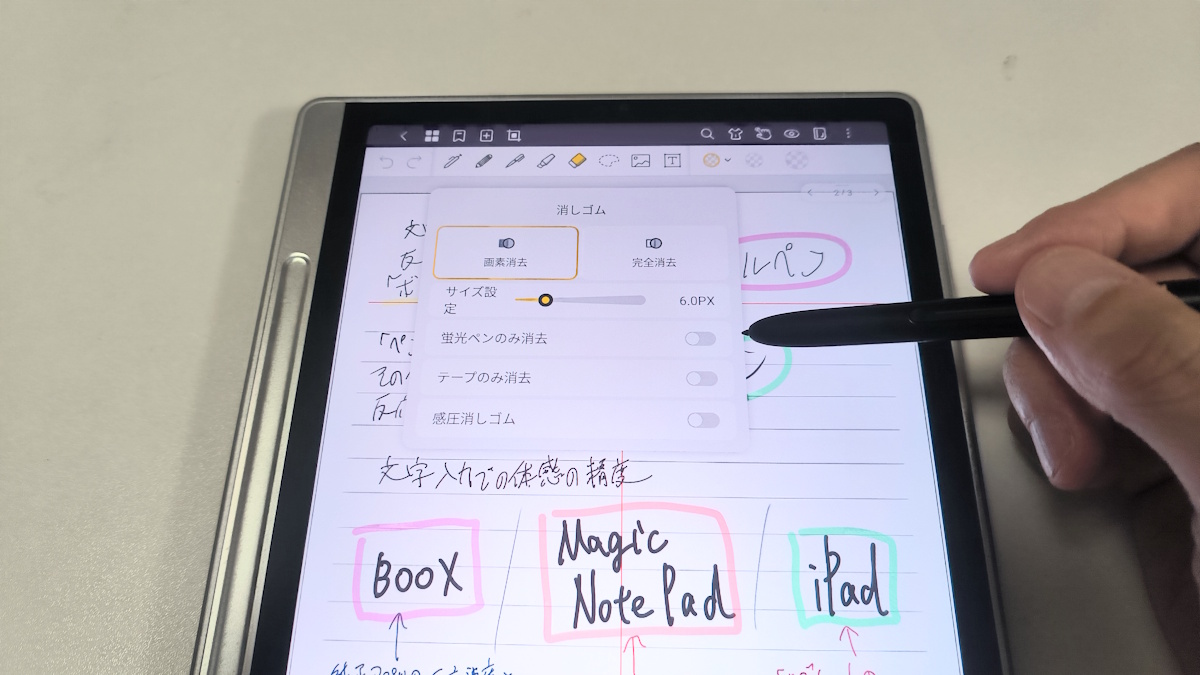 T
2/3
消しゴム
画素消去 完全消去
サイズ設
定
6.0PX
蛍光ペンのみ消去
テープのみ消去
感圧消しゴム
文
反 ルペン
「ボ
「ペン
その
反応
文字入力での体感の精度
BOOX / Magic Note Pad / iPad